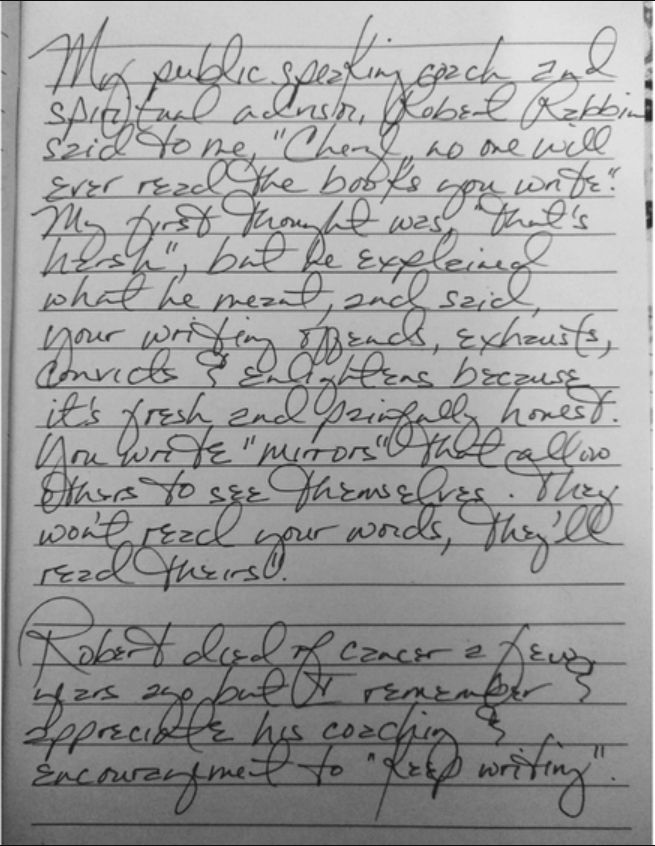 My public speaking coach and
spiritual advisor, Robert Rabbin
said to me, "Cheryl, no one will
ever read the books you write".
My first thought was, "that's
harsh", but he explained
what he meant, and said,
your writing offends, exhausts,
convicts & enlightens because
it's fresh and painfully honest.
You write "mirrors" that allow
others to see themselves. They
won't read your words, they'll
read theirs".
Robert died of cancer a few
years ago but I remember &
appreciate his coaching &
encouragement to "Keep writing".